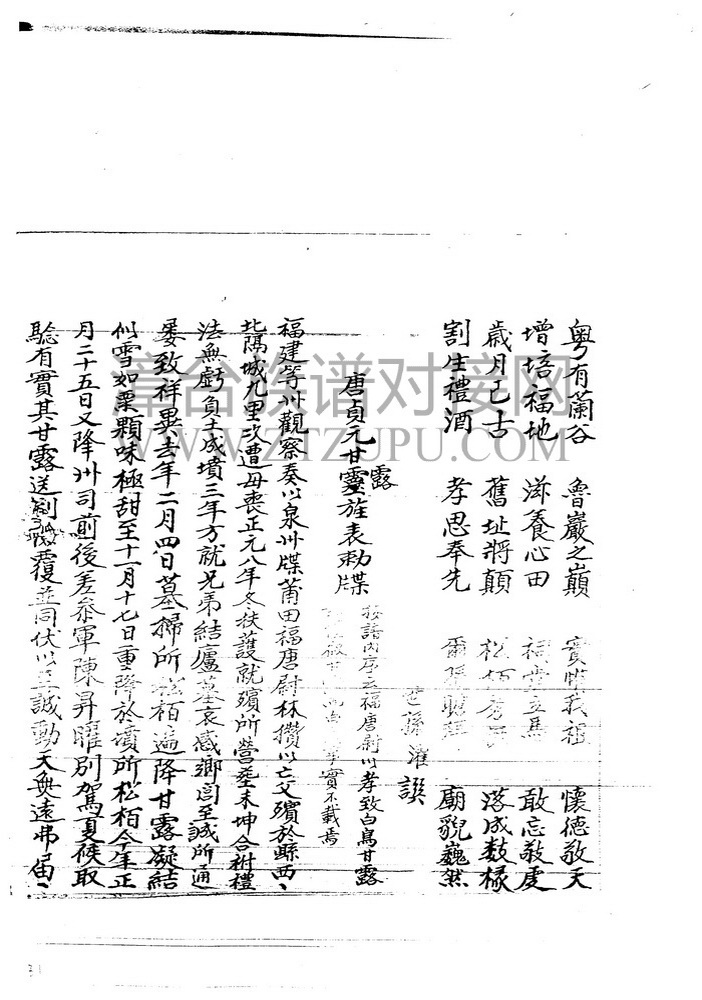 粤有蘭谷 魯巖之巔 實惟我祖 懷德敬天
增培福地 滋養心田 祠堂立焉 敢忘敬虔
歲月已古 舊址將顛 松栢 落成數椽
割牲禮酒 孝思奉先 爾孫聽拜 廟貌巍然
孫濯譔
唐貞元甘露旌表勅牒
按譜內序云福唐尉以孝致白烏甘露
實不載焉
福建等州觀察奏以泉州牒莆田福唐尉林攢以亡父殯於縣西、
北隅城九里次遭母喪正元八年冬扶護就殯所營塟未坤合祔禮
法無虧負土成墳三年方就兄弟結廬墓哀感鄉閭至誠所通
屡致祥異去年二月四日墓掃所松栢遍降甘露凝結
似雪如栗顆味極甜至十一月十七日重降於墳所松栢今年正
月二十五日又降州司前後差叅軍陳昇曜別駕夏候取
騐有實其甘露送 覆並同伏以至誠動天無遠弗届、
章台族谱对接网
WWW.ZTZUPU.COM
31